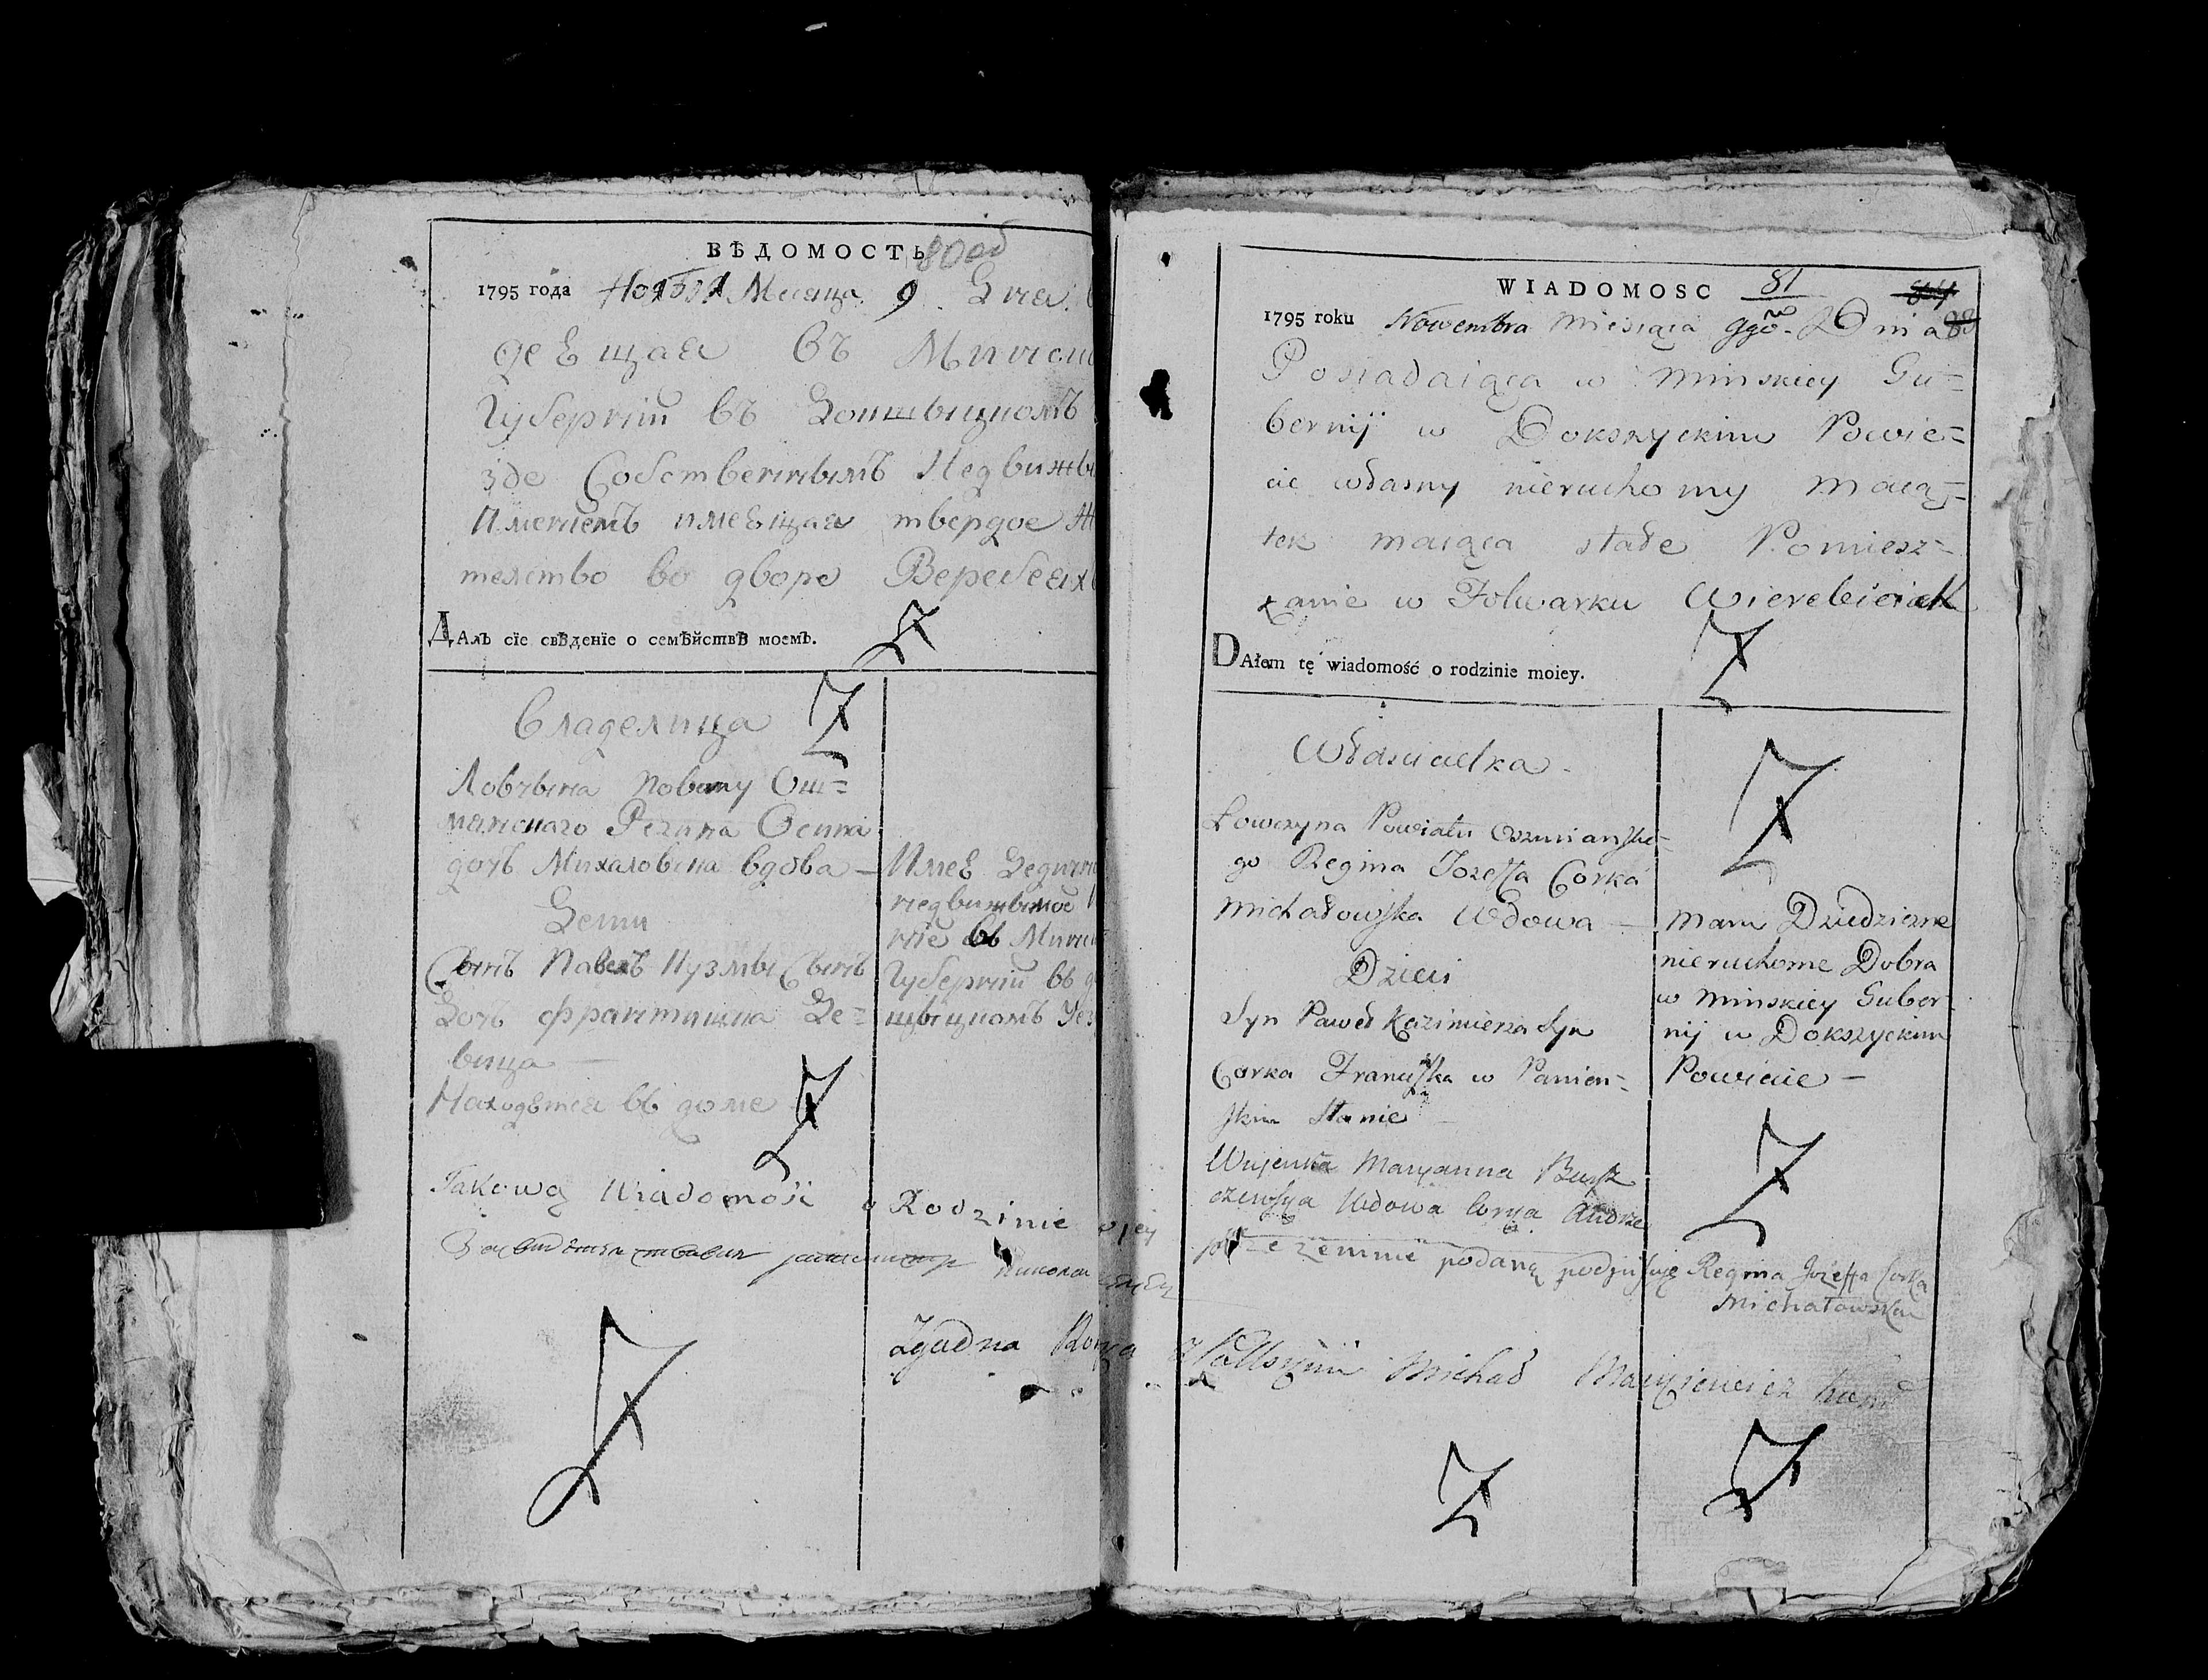 ВѢДОМОСТЬ 80 об
1795 года Ноября Месяца 9 Дня
деющая въ Минск
Губернїи въ Докшыцкомъ
зде Собственнымъ Недвижы
Именіемъ имеющая твердое Жи
телство во дворе Веребеях
ДАлъ сїе свѣденїе о семѣйствѣ моемъ.
Владелица
Ловчына повету Ош=
мянскаго Регина Осипа
дочь Михаловска вдова —
Дети
Сынъ Павелъ Кузмы Сынъ
Дочь Франтишка Де=
вица —
Находятся въ доме
Имею Дедичн
недвижымое
ние въ Минск
Губернїи въ д
шыцкомъ Уез
Takową Wiadomość o Rodzinie
Zgadna Kop
WIADOMOSC 81
1795 roku Nowembra miesiąca 9go Dnia
Posiadaiąca w Minskiey Gu=
bernij w Dokszyckim Powie=
cie własny nieruchomy maią=
tek maiąca stałe Pomiesz=
zanie w Folwarku Wierebieiach
DAłem tę wiadomość o rodzinie moiey.
Właścicielka
Łowczyna Powiatu Oszmianskie=
go Regina Jozeffa Corka
Michałowska Wdowa —
Dzieci
Syn Paweł Kazimierza Syn
Corka Franciszka w Panień=
skim Stanie —
Wujenka Maryanna
Wdowa
Mam Dziedziczne
nieruchome Dobra
w Minskiey Guber=
nij w Dokszyckim
Powiecie —
przezemnie podaną podpisuię Regina Jozeffa Corka
Michałowska
Michał